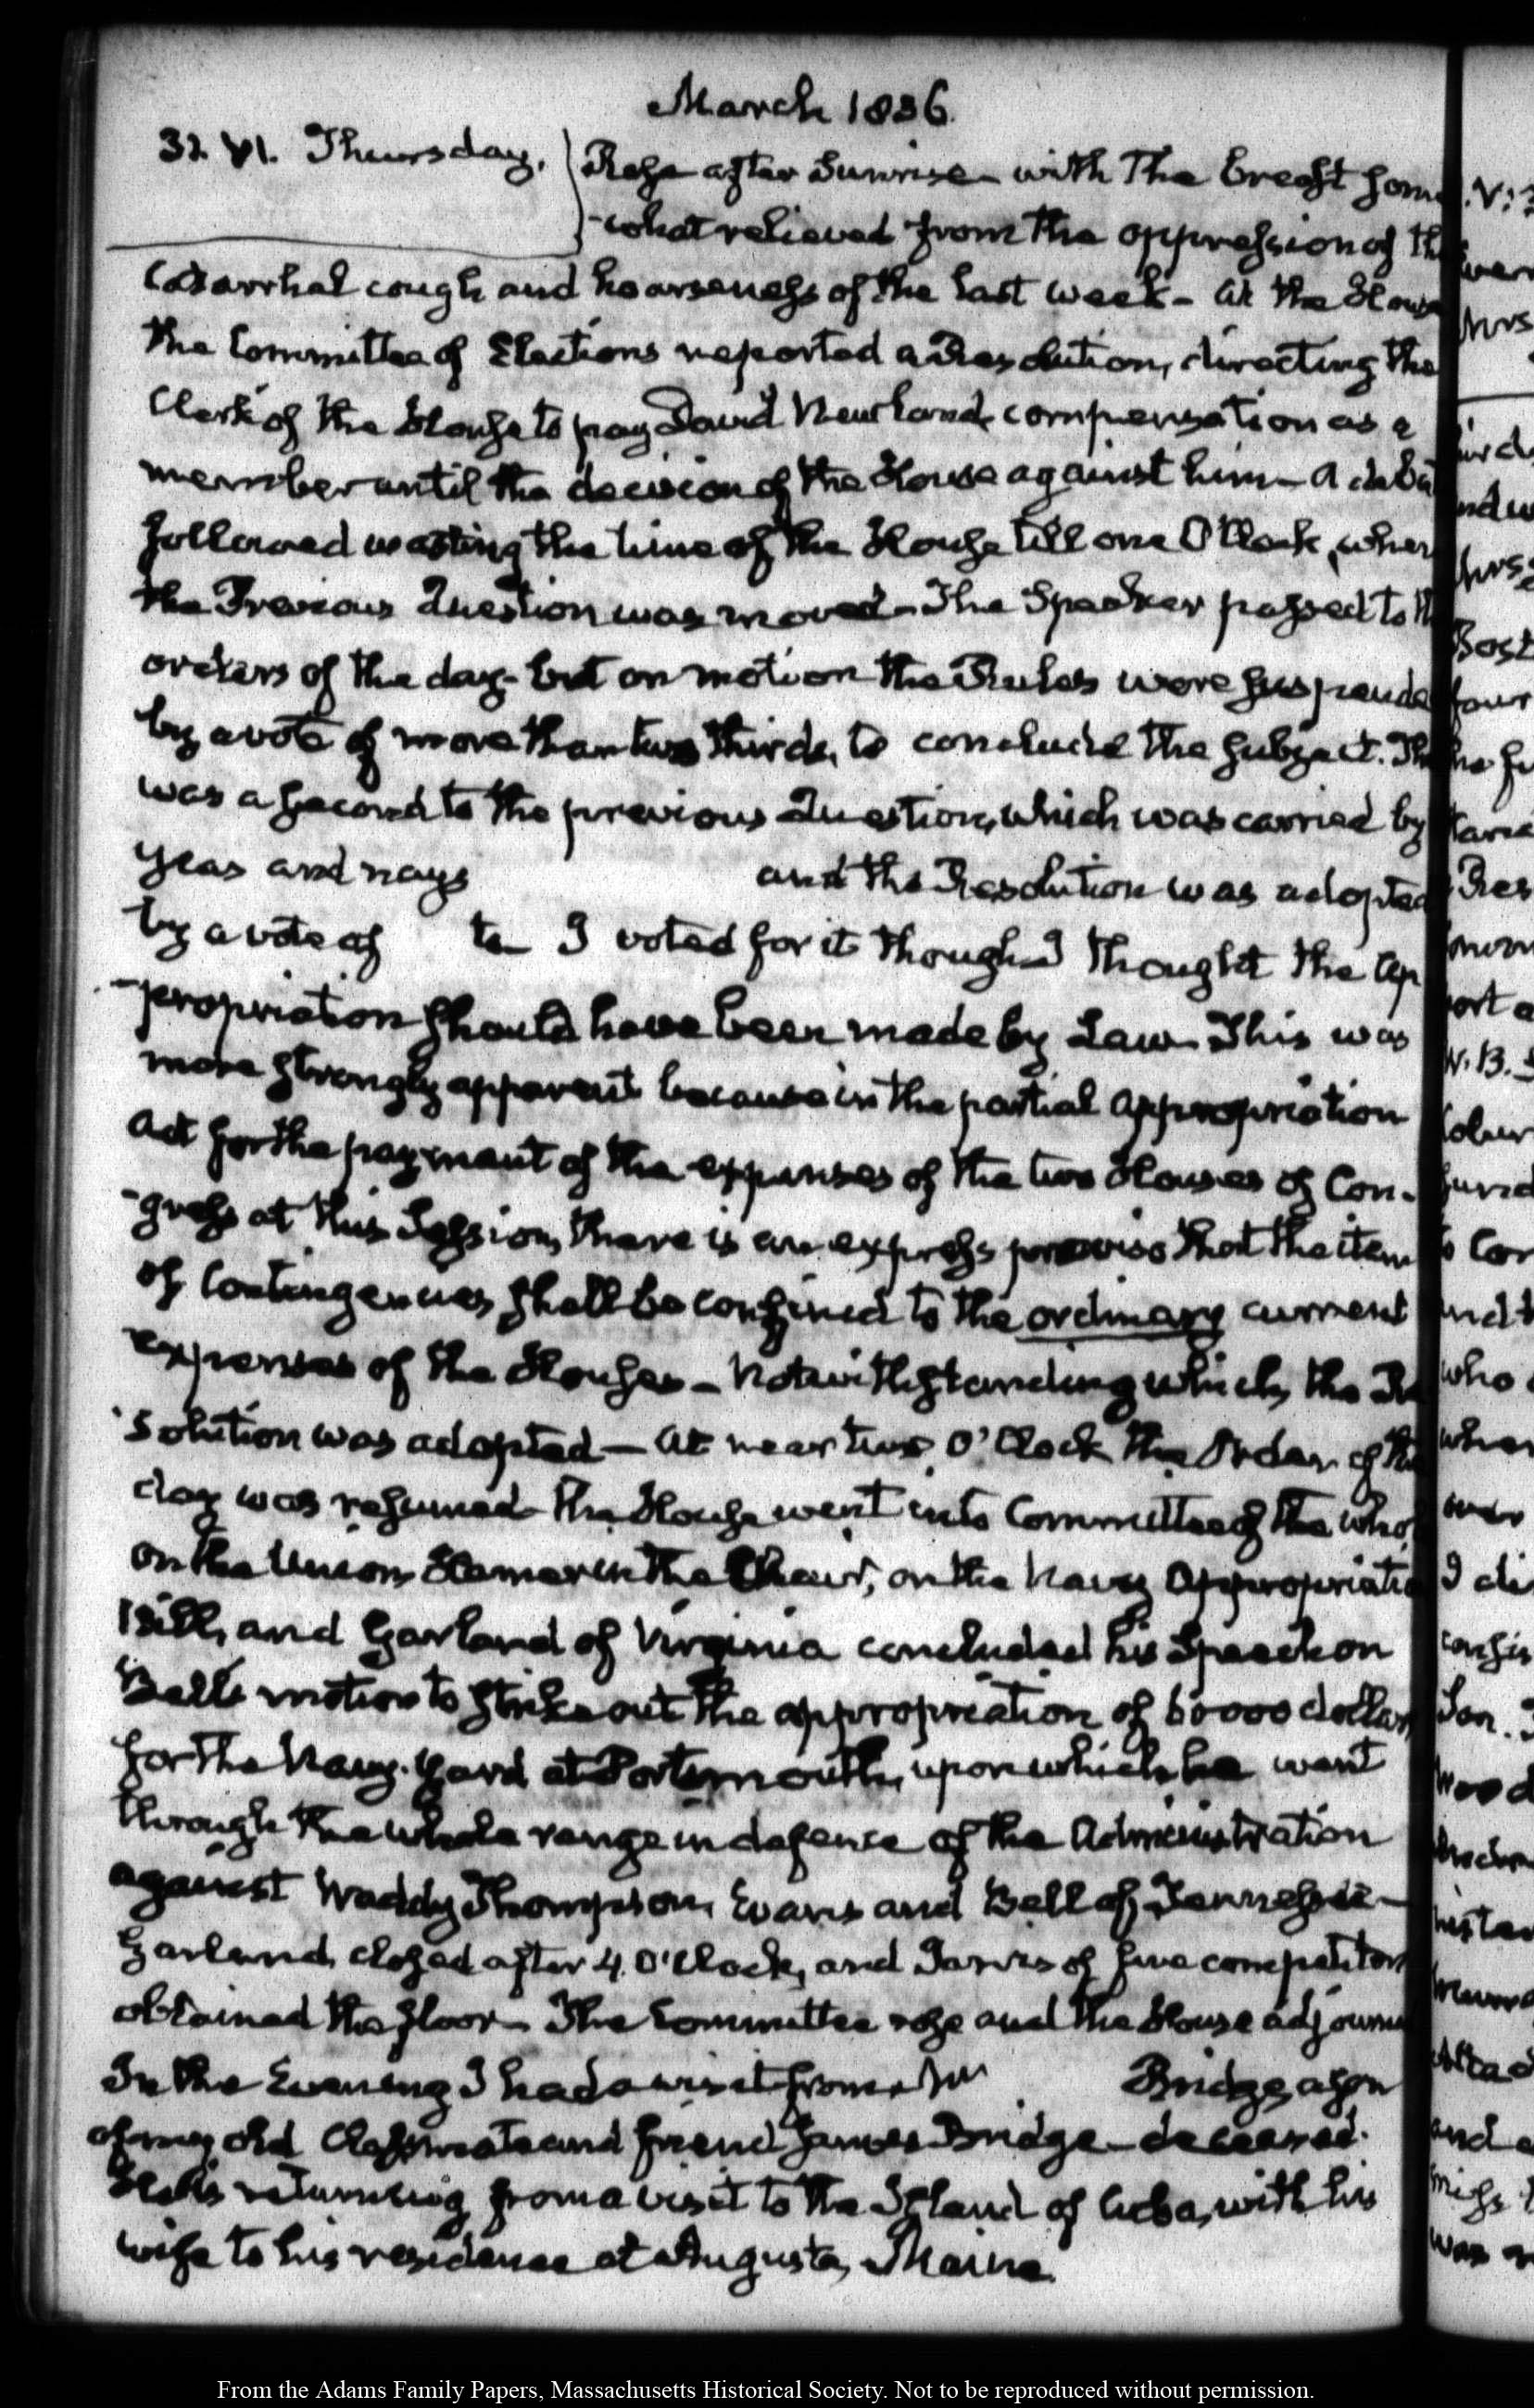 March 1836.
31. VI. Thursday.
Rose after Sunrise with The breast some
-what relieved from the oppression of the
Catarrhal cough and hoarseness of the last week - At the House
the Committee of Elections reported a Resolution, directing the
Clerk of the House to pay David Newland compensation as a
member until the decision of the House against him - A deba
followed wasting the time of the House till one O'Clock, when
the Previous Question was moved - The Speaker passed to th
orders of the day - but on motion the Rules were suspende
by a vote of more than two thirds, to conclude the subject. The
was a second to the previous Question, which was carried by
yeas and nays and the Resolution was adopted
by a vote of to I voted for it though I thought the ap
-propriation should have been made by Law. This was
more strongly apparent because in the partial appropriation
Act for the payment of the expenses of the two Houses of Con-
-gress at this Session, there is an express proviso that the item
of Contingencies, shall be confined to the ordinary current
expenses of the Houses - Notwithstanding which, the Re
-solution was adopted - At near two O'Clock the Order of the
day was resumed - the House went into Committee of the whol
on the Union, Hamer in the Chair, on the Navy Appropriatio
Bill, and Garland of Virginia concluded his Speech on
Bell's motion to strike out the appropriation of 60000 dollars
for the Navy-Yard at Portsmouth, upon which he went
through the whole range in defence of the Administration
against Waddy Thompson, Evans and Bell of Tennessee -
Garland, closed after 4. O'Clock, and Jarvis of five competitors
obtained the floor - The Committee rose and the House adjourne
In the Evening I had a visit from Mr Bridge, a son
of my old Classmate and friend James Bridge - deceased.
He is returning from a visit to the Island of Cuba, with his
wife to his residence at Augusta, Maine.
From the Adams Family Papers, Massachusetts Historical Society. Not to be reproduced without permission.